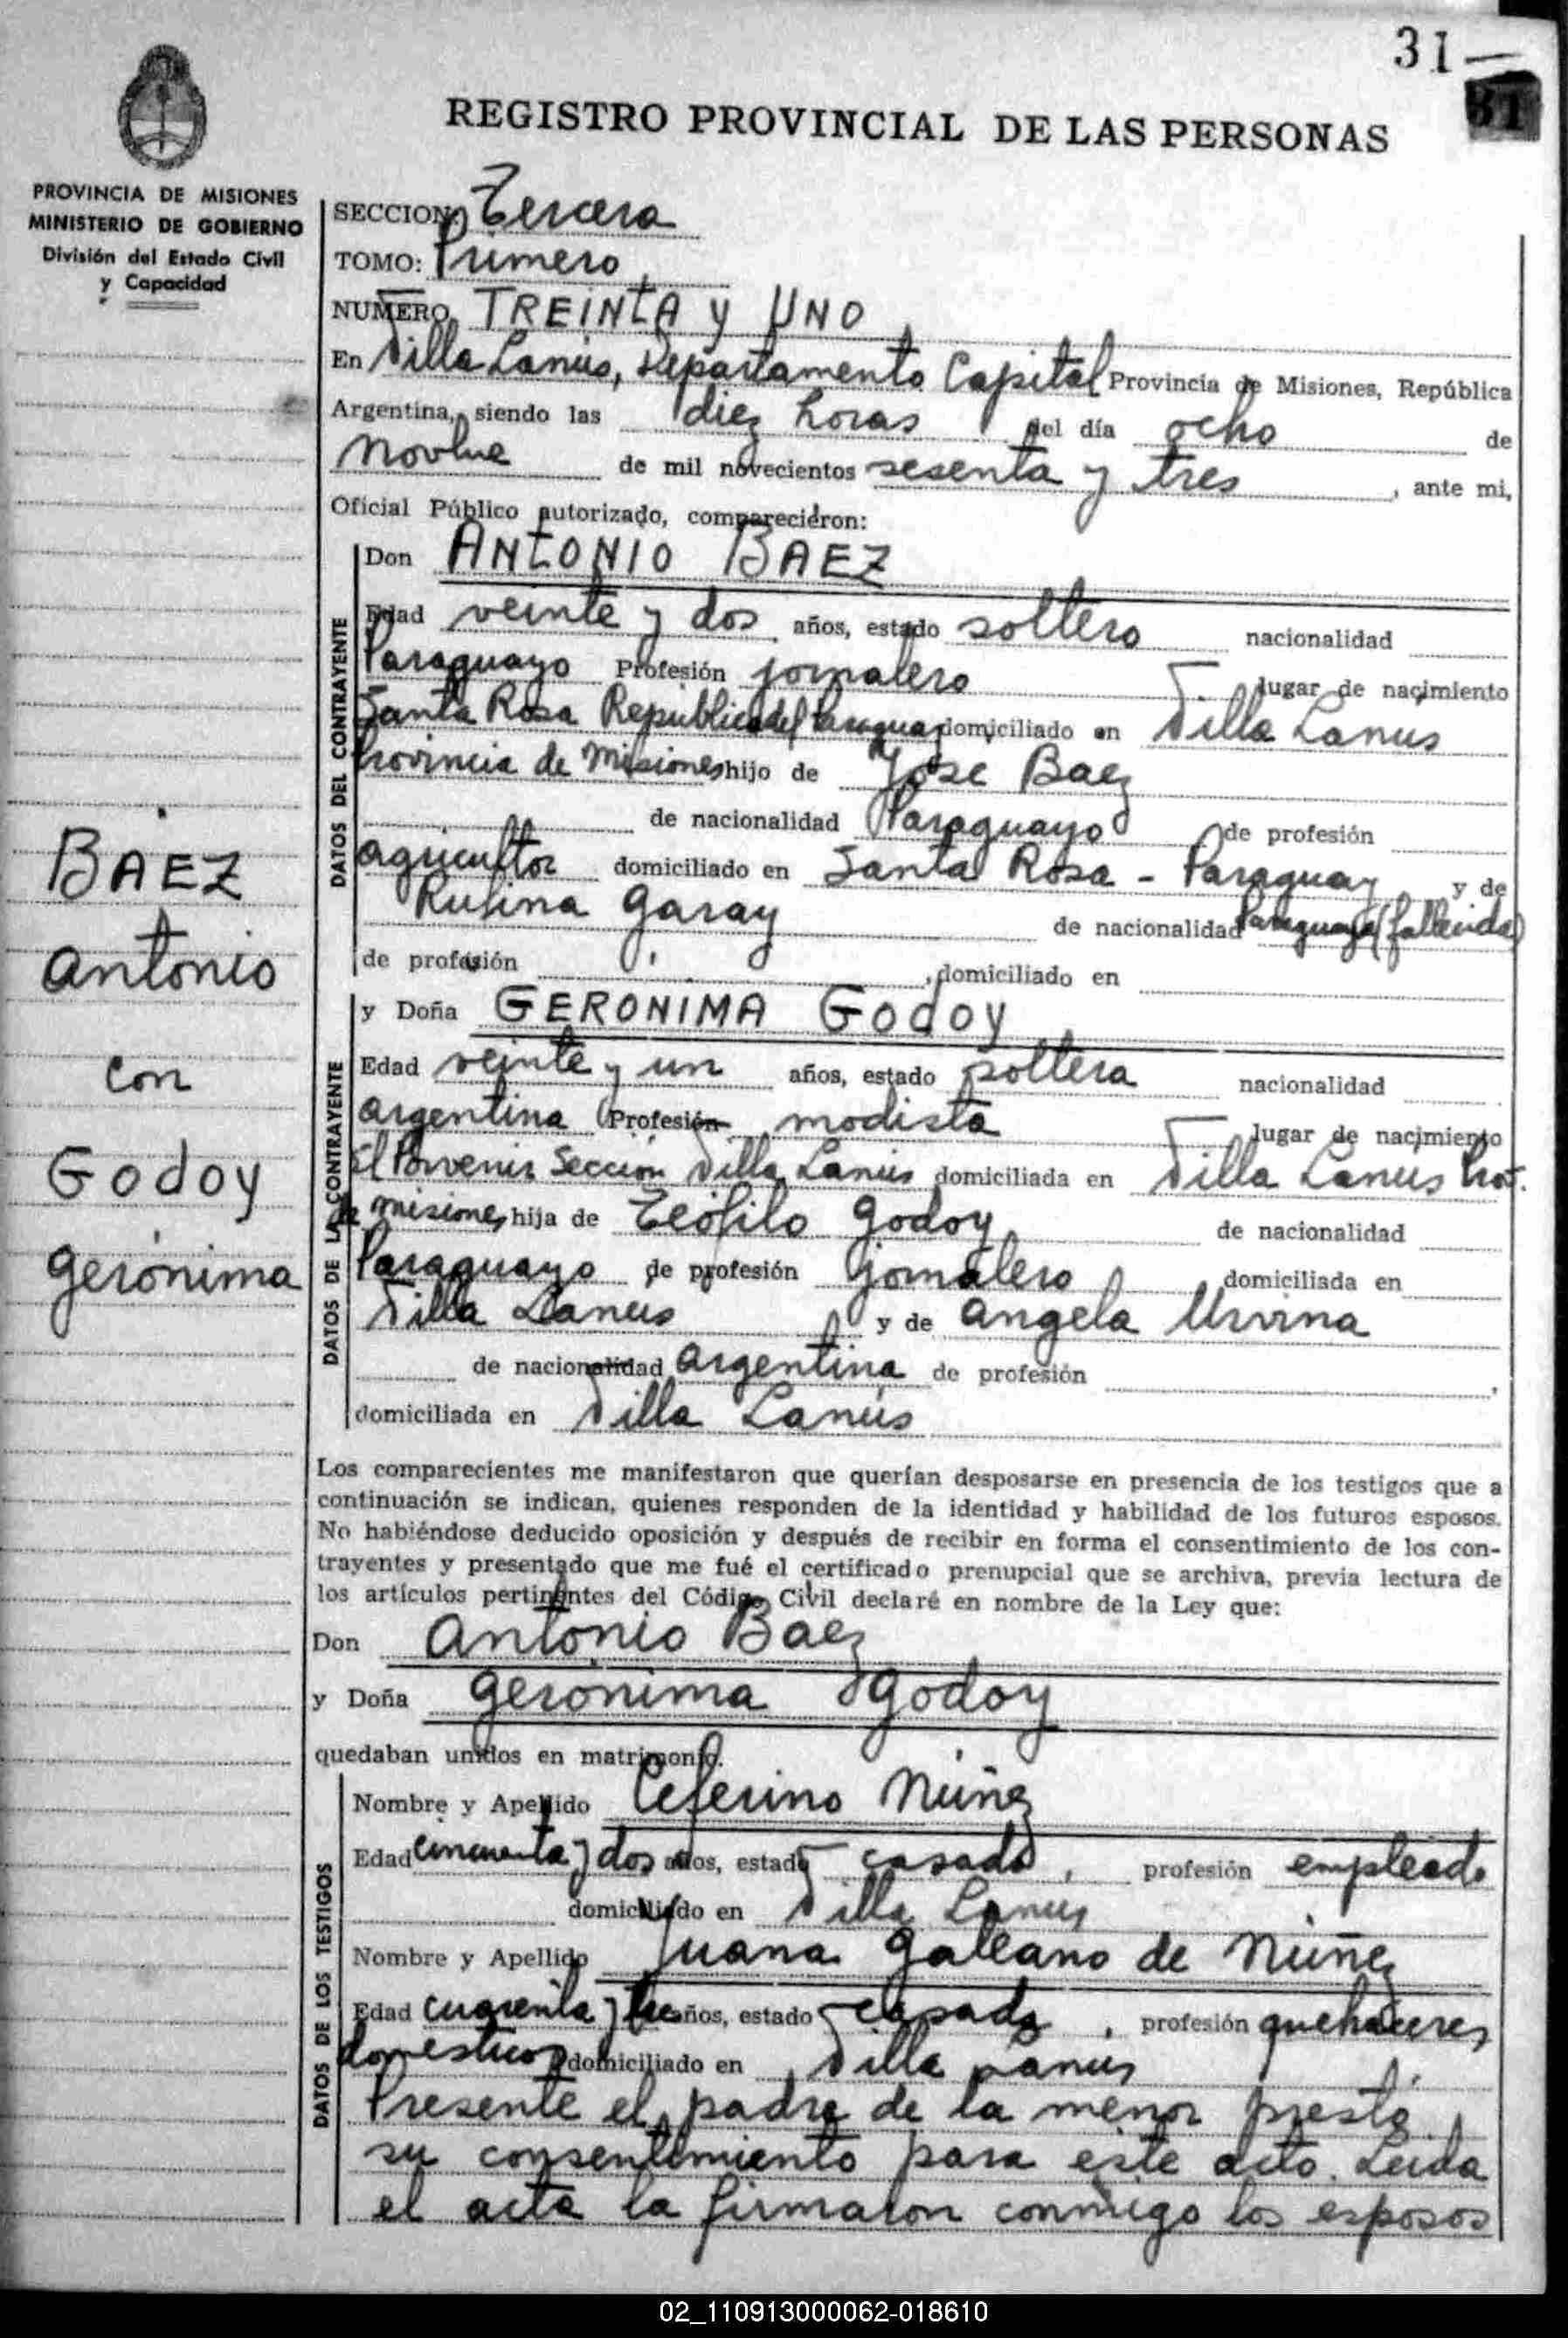 31
31
REGISTRO PROVINCIAL DE LAS PERSONAS
PROVINCIA DE MISIONES
MINISTERIO DE GOBIERNO
División del Estado Civil
y Capacidad
SECCION: Tercera
TOMO: Primero
NUMERO TREINTA y UNO
En Villa Lanús, Departamento Capital Provincia de Misiones, República
Argentina, siendo las diez horas del día ocho de
novbre de mil novecientos sesenta y tres, ante mi,
Oficial Público autorizado, comparecieron:
DATOS DEL CONTRAYENTE
Don ANTONIO BAEZ
Edad veinte y dos años, estado soltero nacionalidad
Paraguayo Profesión jornalero lugar de nacimiento
Santa Rosa República del Paraguay domiciliado en Villa Lanus
Provincia de Misiones hijo de José Baez
de nacionalidad Paraguayo de profesión
agricultor domiciliado en Santa Rosa - Paraguay y de
Rufina Garay de nacionalidad Paraguaya (fallecida)
de profesión , domiciliado en
DATOS DE LA CONTRAYENTE
y Doña GERONIMA GODOY
Edad veinte y un años, estado soltera nacionalidad
argentina Profesión modista lugar de nacimiento
El Porvenir Sección Villa Lanús domiciliada en Villa Lanus Prov.
de Misiones hija de Teófilo Godoy de nacionalidad
Paraguayo de profesión Jornalero, domiciliada en
Villa Lanus y de Angela
de nacionalidad argentina de profesión ,
domiciliada en Villa Lanús
BAEZ
Antonio
con
Godoy
Gerónima
Los comparecientes me manifestaron que querían desposarse en presencia de los testigos que a
continuación se indican, quienes responden de la identidad y habilidad de los futuros esposos.
No habiéndose deducido oposición y después de recibir en forma el consentimiento de los con-
trayentes y presentado que me fué el certificado prenupcial que se archiva, previa lectura de
los artículos pertinentes del Código Civil declaré en nombre de la Ley que:
Don Antonio Baez
y Doña Gerónima Godoy
quedaban unidos en matrimonio.
DATOS DE LOS TESTIGOS
Nombre y Apellido Ceferino Núñez
Edad cincuenta y dos años, estado casado, profesión empleado
domiciliado en Villa Lanus
Nombre y Apellido Juana Galeano de Núñez
Edad cuarenta y tres años, estado casada, profesión quehaceres
domesticos domiciliado en Villa Lanus
Presente el padre de la menor prestó
su consentimiento para este acto. Leida
el acta la firmaron conmigo los esposos
02_110913000062-018610